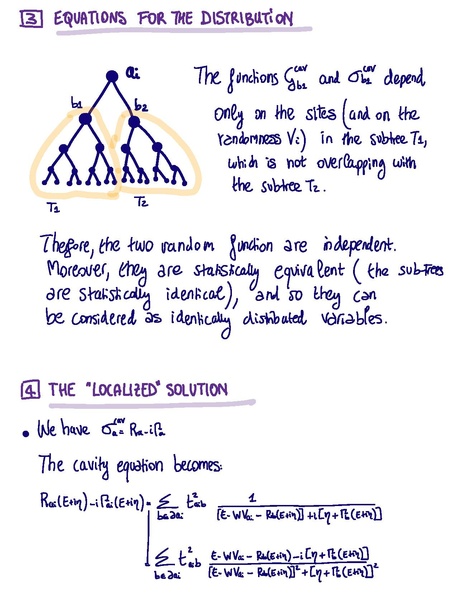 3 EQUATIONS FOR THE DISTRIBUTION
ai
b1 b2
T1 T2
The functions G^cav_b1 and σ^cav_b1 depend
only on the sites (and on the
randomness Vi) in the subtree T1,
which is not overlapping with
the subtree T2.
Therefore, the two random function are independent.
Moreover, they are statistically equivalent (the subtrees
are statistically identical), and so they can
be considered as identically distributed variables.
4 THE "LOCALIZED" SOLUTION
• We have σ^cav_a = Ra - iΓa
The cavity equation becomes:
Rai(E+iη) - iΓai(E+iη) = Σ_{b∈∂ai} t²_aib 1 / [E - WVai - Rb(E+iη)] + i[η + Γb(E+iη)]
Σ_{b∈∂ai} t²_aib E - WVai - Rb(E+iη) - i[η + Γb(E+iη)] / [E - WVai - Rb(E+iη)]² + [η + Γb(E+iη)]²